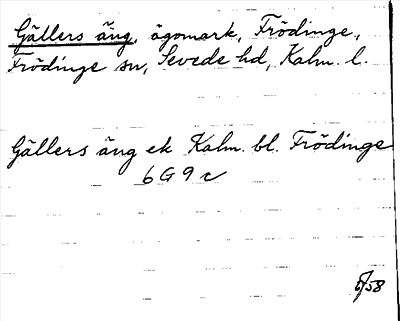 Gällers äng, ägomark, Frödinge,
Frödinge sn, Sevede hd, Kalm. l.
Gällers äng ek Kalm. bl. Frödinge
6 G 9 c